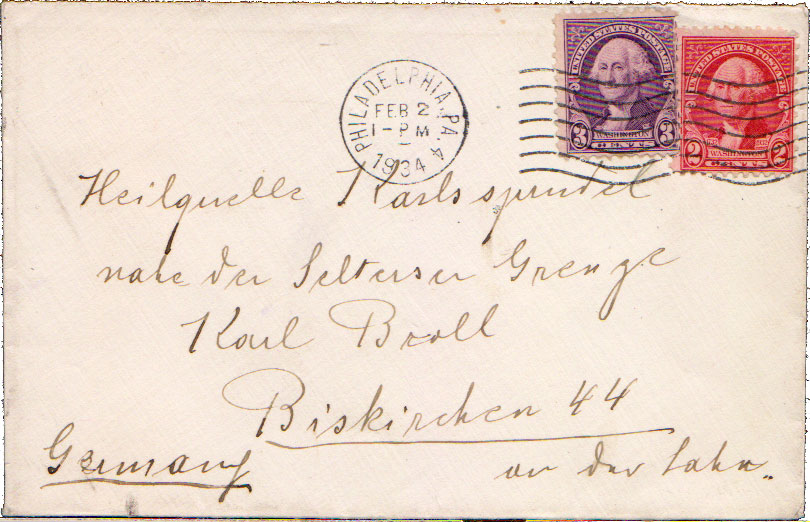 UNITED STATES POSTAGE
3 WASHINGTON 3
UNITED STATES POSTAGE
2 WASHINGTON 2
PHILADELPHIA, PA. 4
FEB 2
1-PM
1934
Heilquelle Karlssprudel
nahe der Selterser Grenze
Karl Broll
Biskirchen 44
Germany
an der Lahn